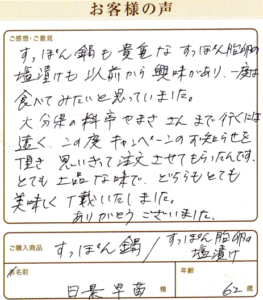 お客様の声
ご感想・ご意見
すっぽん鍋も貴重なすっぽん胎卵の
塩漬けも以前から興味があり、一度は
食べてみたいと思っていました。
大分県の料亭やまささんまで行くには
遠く、この度キャンペーンのお知らせを
頂き思いきって注文させてもらったんです。
とても上品な味で、どちらもとても
美味しく頂戴いたしました。
ありがとうございました。
ご購入商品
すっぽん鍋/すっぽん胎卵の
塩漬け
お名前
日景早苗 様
年齢
62歳